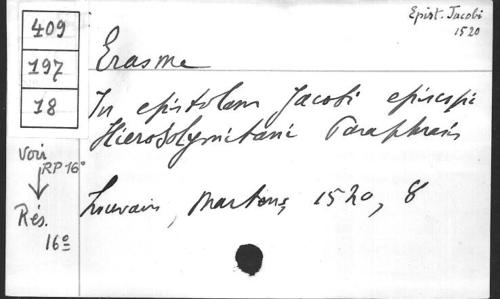 Epist. Jacobi
1520
409
197
18
Erasme
In epistolam Jacobi episcopi
Hierosolymitani Paraphrasis
Louvain, Martens, 1520, 8
voir
RP 16°
Rés.
16°